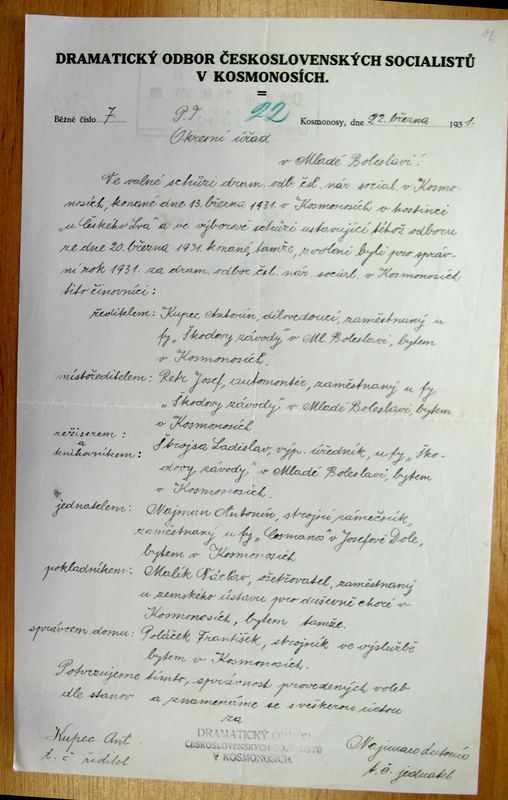 12
DRAMATICKÝ ODBOR ČESKOSLOVENSKÝCH SOCIALISTŮ
V KOSMONOSÍCH.
Běžné číslo 7 P.T. 22 Kosmonosy, dne 22. března 1931.
Okresní úřad
v Mladé Boleslavi!
Ve valné schůzi dram. odb. čsl. nár. social. v Kosmo-
nosích, konané dne 13. března 1931. v Kosmonosích v hostinci
„u Českého lva" a ve výborové schůzi ustavující téhož odboru
ze dne 20. března 1931. konané, tamže, zvoleni byli pro správ-
ní rok 1931. za dram. odbor čsl. nár. social. v Kosmonosích
tito činovníci:
ředitelem: Kupec Antonín, dílovedoucí, zaměstnaný u
fy „Škodovy závody" v Ml. Boleslavi, bytem
v Kosmonosích.
místořed­itelem: Petr Josef, automontér, zaměstnaný u fy
„Škodovy závody" v Mladé Boleslavi, bytem
v Kosmonosích
režiserem: a knihovníkem: Strojsa Ladislav, výp. úředník, u fy „Ško-
dovy závody" v Mladé Boleslavi, bytem
v Kosmonosích.
jednatelem: Najman Antonín, strojní zámečník,
zaměstnaný u fy „Cosmanos" v Josefově Dole,
bytem v Kosmonosích
pokladníkem: Malík Václav, ošetřovatel, zaměstnaný
u zemského ústavu pro duševně choré v
Kosmonosích, bytem tamže.
správcem domu: Poláček František, strojník ve výslužbě
bytem v Kosmonosích.
Potvrzujeme tímto, správnost provedených voleb
dle stanov a znamenáme se s veškerou úctou
za
DRAMATICKÝ ODBOR
ČESKOSLOVENSKÝCH SOCIALISTŮ
V KOSMONOSÍCH.
Kupec Ant.
t. č. řiditel
Najman Antonín
t. č. jednatel